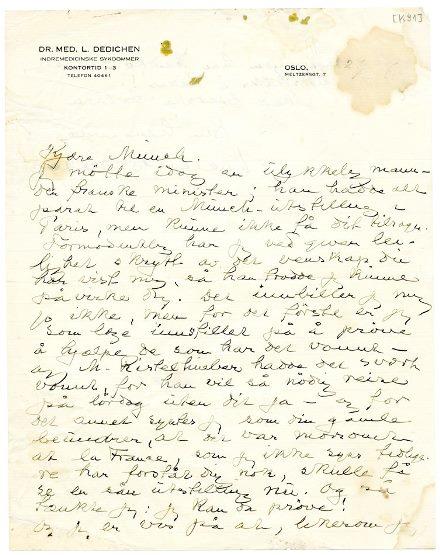 [K 91]
DR. MED. L. DEDICHEN
INDREMEDICINSKE SYKDOMMER
KONTORTID 1-3
TELEFON 40461
OSLO,
MELTZERSGT. 7
Kjære Munch.
Jeg møtte idag en ulykkelig mann -
den franske minister; han hadde alt
parat til en Munch-utstilling i
Paris, men kunne ikke få dit tilsagn.
Formodentlig har jeg ved given lei-
lighet skrytt av det venskap du
har vist mig, så han trodde jeg kunne
påvirke dig. Det innbiller jeg mig
jo ikke, men for det første er jeg
som læge innstillet på å prøve
å hjelpe de som har det vondt -
og M. Ristelhueber hadde det svært
vondt, for han vil så nødig reise
på lørdag uten dit ja - og for
det annet synes jeg, som din gamle
beundrer, at det var morsomt
at la France, som jeg ikke synes tidlige-
re har forstått dig nok, skulle få
se en sån utstilling nu. Og så
tænkte jeg: jeg kan da prøve!
Og jeg er viss på at, likesom jeg